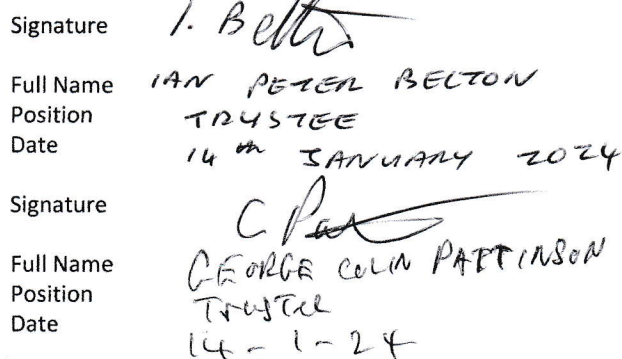 Signature I. Belton
Full Name IAN PETER BELTON
Position TRUSTEE
Date 14th JANUARY 2024
Signature C Pa
Full Name GEORGE COLIN PATTINSON
Position Trustee
Date 14-1-24